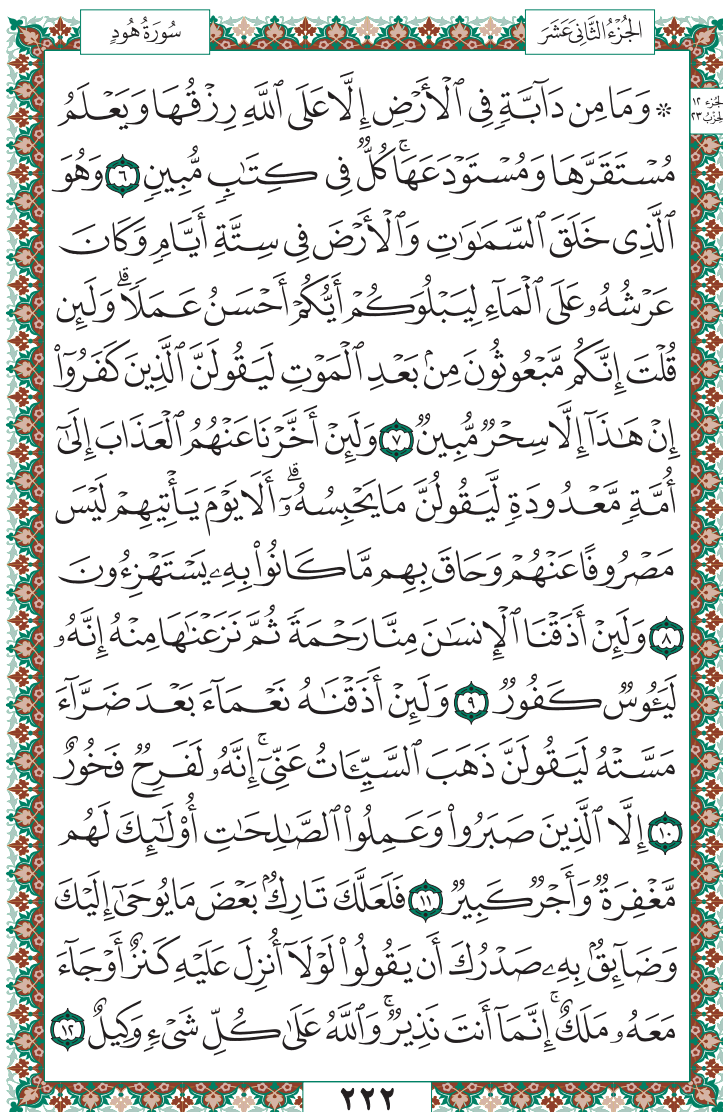 الجُزْءُ الثَّانِى عَشَرَ
سُورَةُ هُودٍ
الجزء ١٢
الحزب ٢٣
۞ وَمَا مِن دَآبَّةٍ فِى ٱلْأَرْضِ إِلَّا عَلَى ٱللَّهِ رِزْقُهَا وَيَعْلَمُ
مُسْتَقَرَّهَا وَمُسْتَوْدَعَهَاۚ كُلٌّ فِى كِتَٰبٍ مُّبِينٍ ٦ وَهُوَ
ٱلَّذِى خَلَقَ ٱلسَّمَٰوَٰتِ وَٱلْأَرْضَ فِى سِتَّةِ أَيَّامٍ وَكَانَ
عَرْشُهُۥ عَلَى ٱلْمَآءِ لِيَبْلُوَكُمْ أَيُّكُمْ أَحْسَنُ عَمَلًاۗ وَلَئِن
قُلْتَ إِنَّكُم مَّبْعُوثُونَ مِنۢ بَعْدِ ٱلْمَوْتِ لَيَقُولَنَّ ٱلَّذِينَ كَفَرُوٓا۟
إِنْ هَٰذَآ إِلَّا سِحْرٌ مُّبِينٌ ٧ وَلَئِنْ أَخَّرْنَا عَنْهُمُ ٱلْعَذَابَ إِلَىٰٓ
أُمَّةٍ مَّعْدُودَةٍ لَّيَقُولُنَّ مَا يَحْبِسُهُۥٓۗ أَلَا يَوْمَ يَأْتِيهِمْ لَيْسَ
مَصْرُوفًا عَنْهُمْ وَحَاقَ بِهِم مَّا كَانُوا۟ بِهِۦ يَسْتَهْزِءُونَ
٨ وَلَئِنْ أَذَقْنَا ٱلْإِنسَٰنَ مِنَّا رَحْمَةً ثُمَّ نَزَعْنَٰهَا مِنْهُ إِنَّهُۥ
لَيَـُٔوسٌ كَفُورٌ ٩ وَلَئِنْ أَذَقْنَٰهُ نَعْمَآءَ بَعْدَ ضَرَّآءَ
مَسَّتْهُ لَيَقُولَنَّ ذَهَبَ ٱلسَّيِّـَٔاتُ عَنِّىٓۚ إِنَّهُۥ لَفَرِحٌ فَخُورٌ
١٠ إِلَّا ٱلَّذِينَ صَبَرُوا۟ وَعَمِلُوا۟ ٱلصَّٰلِحَٰتِ أُو۟لَٰٓئِكَ لَهُم
مَّغْفِرَةٌ وَأَجْرٌ كَبِيرٌ ١١ فَلَعَلَّكَ تَارِكٌۢ بَعْضَ مَا يُوحَىٰٓ إِلَيْكَ
وَضَآئِقٌۢ بِهِۦ صَدْرُكَ أَن يَقُولُوا۟ لَوْلَآ أُنزِلَ عَلَيْهِ كَنزٌ أَوْ جَآءَ
مَعَهُۥ مَلَكٌۚ إِنَّمَآ أَنتَ نَذِيرٌۚ وَٱللَّهُ عَلَىٰ كُلِّ شَىْءٍ وَكِيلٌ ١٢
٢٢٢